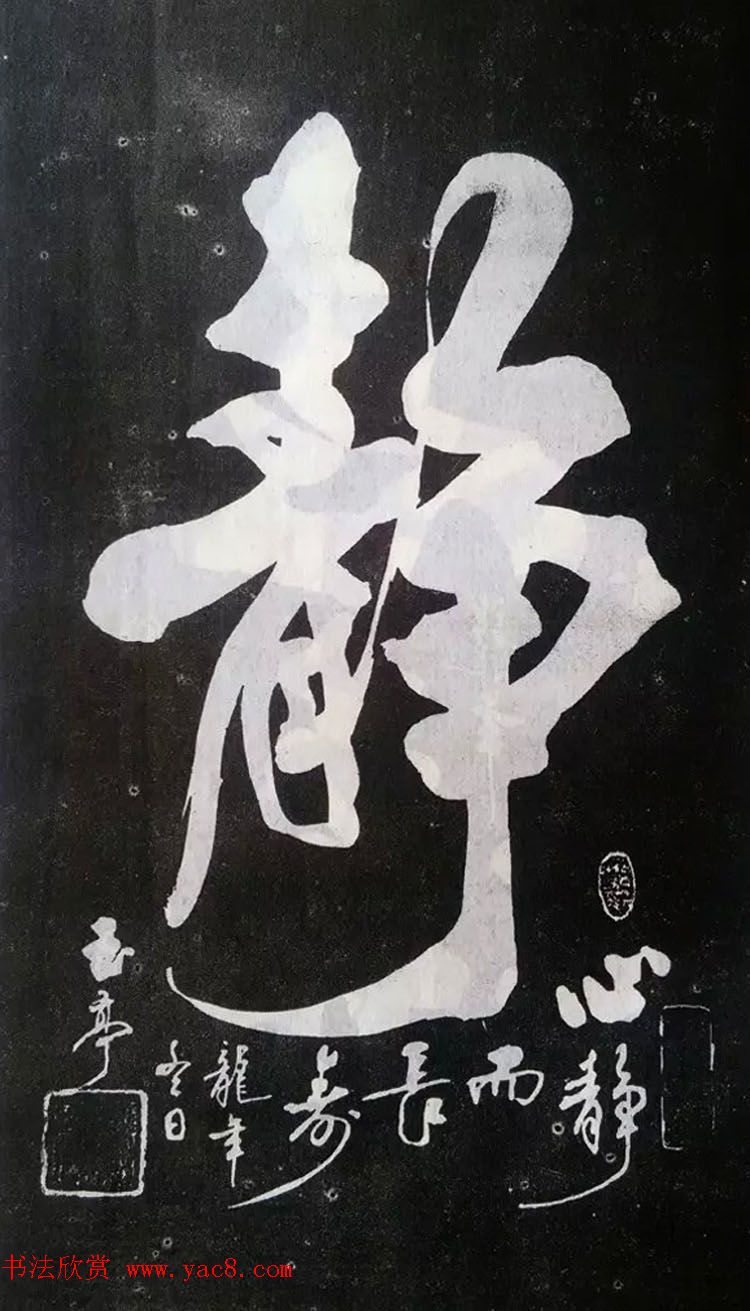 靜
心靜而長壽
龍年
冬日
玉亭
书法欣赏 www.yac8.com